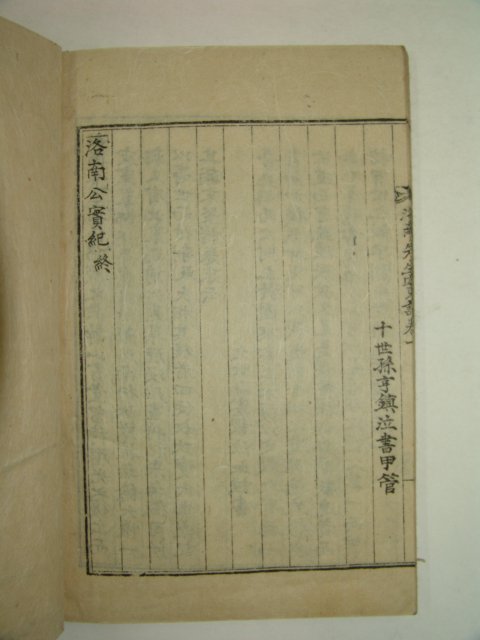 十世孫亨鎮泣書甲管
洛南公實紀終